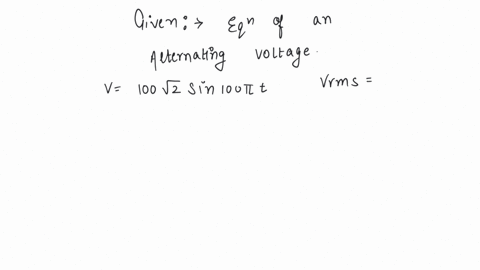 Given:→ Eqⁿ of an
Alternating voltage.
V= 100 √2 sin 100π t Vrms =